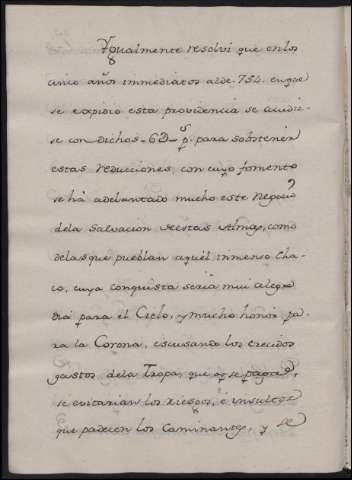 Ygualmente resolvi que en los
cinco años immediatos al de 754. en que
se expidio esta providencia se acudie-
se con dichos 6D p.s para sobstener
estas reducciones, con cuyo fomento
se há adelantado mucho este Negocio
de la Salvacion de estas Almas, como
de las que pueblan aquél inmenso Cha-
co, cuya conquista seria mui alegre
dia para el Cielo, y mucho honor pa-
ra la Corona, escusando los crecidos
gastos de la Tropa, que oy se pagan,
se evitarian los riesgos, é insultos
que padecen los Caminantes, y se